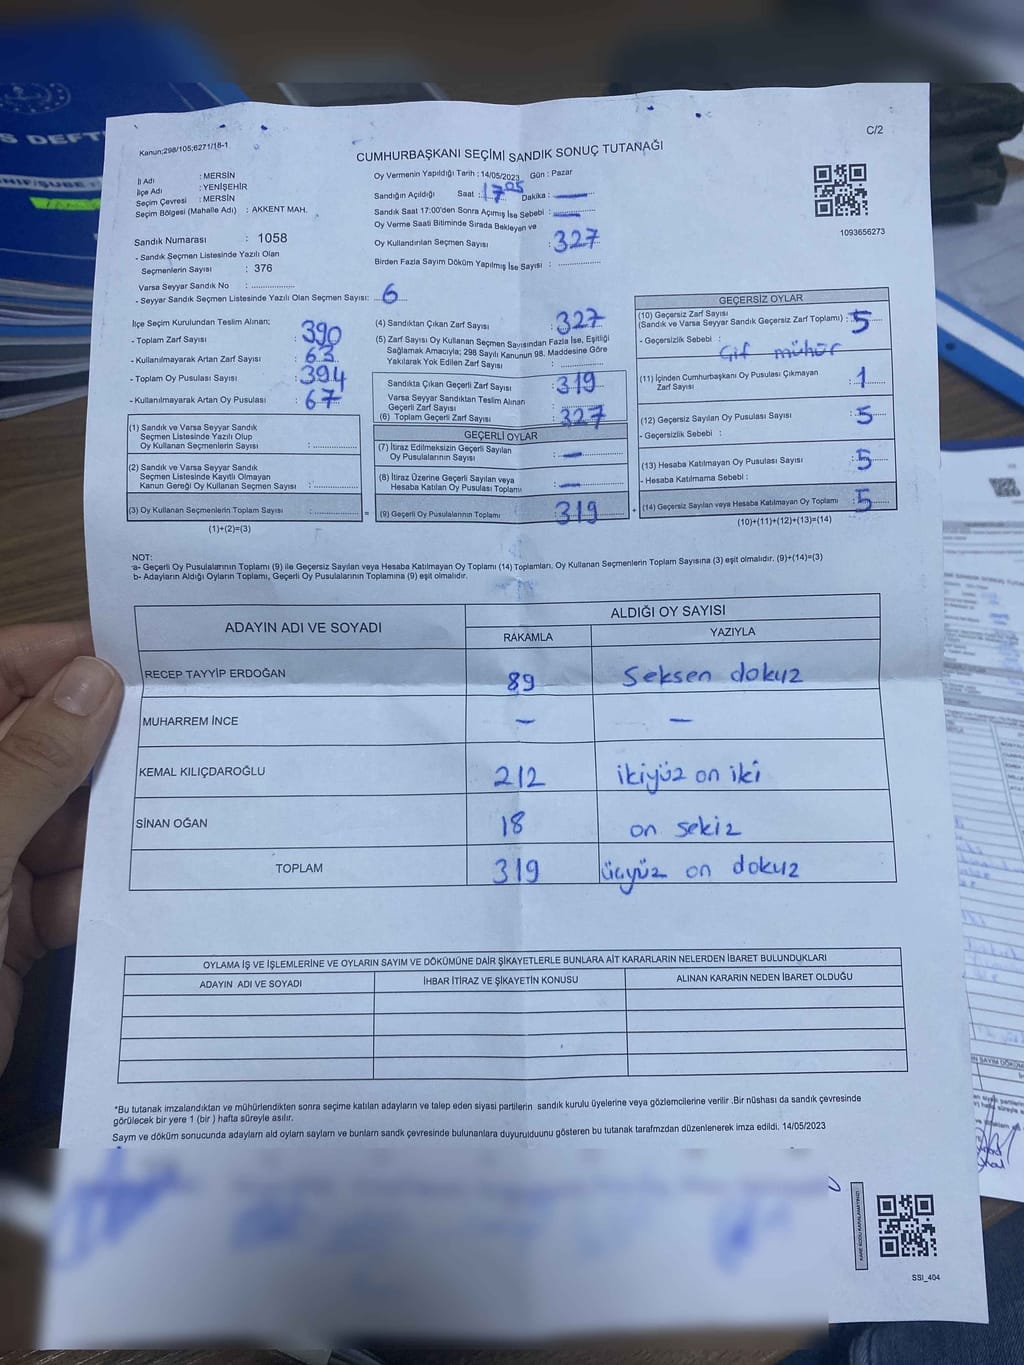 S DEFT
C/2
Kanun;298/105;6271/18-1
CUMHURBAŞKANI SEÇİMİ SANDIK SONUÇ TUTANAĞI
İl Adı : MERSİN
İlçe Adı : YENİŞEHİR
Seçim Çevresi : MERSİN
Seçim Bölgesi (Mahalle Adı) : AKKENT MAH.
Sandık Numarası : 1058
- Sandık Seçmen Listesinde Yazılı Olan
Seçmenlerin Sayısı : 376
Varsa Seyyar Sandık No :
- Seyyar Sandık Seçmen Listesinde Yazılı Olan Seçmen Sayısı: 6
Oy Vermenin Yapıldığı Tarih : 14/05/2023 Gün : Pazar
Sandığın Açıldığı Saat : 17 05 Dakika : —
Sandık Saat 17:00'den Sonra Açımış İse Sebebi : —
Oy Verme Saati Bitiminde Sırada Bekleyen ve
Oy Kullandırılan Seçmen Sayısı : 327
Birden Fazla Sayım Döküm Yapılmış İse Sayısı :
1093656273
İlçe Seçim Kurulundan Teslim Alınan;
- Toplam Zarf Sayısı : 390
- Kullanılmayarak Artan Zarf Sayısı : 63
- Toplam Oy Pusulası Sayısı : 394
- Kullanılmayarak Artan Oy Pusulası : 67
(1) Sandık ve Varsa Seyyar Sandık
Seçmen Listesinde Yazılı Olup
Oy Kullanan Seçmenlerin Sayısı :
(2) Sandık ve Varsa Seyyar Sandık
Seçmen Listesinde Kayıtlı Olmayan
Kanun Gereği Oy Kullanan Seçmen Sayısı :
(3) Oy Kullanan Seçmenlerin Toplam Sayısı : =
(1)+(2)=(3)
(4) Sandıktan Çıkan Zarf Sayısı : 327
(5) Zarf Sayısı Oy Kullanan Seçmen Sayısından Fazla İse, Eşitliği
Sağlamak Amacıyla; 298 Sayılı Kanunun 98. Maddesine Göre
Yakılarak Yok Edilen Zarf Sayısı :
Sandıkta Çıkan Geçerli Zarf Sayısı : 319
Varsa Seyyar Sandıktan Teslim Alınan
Geçerli Zarf Sayısı :
(6) Toplam Geçerli Zarf Sayısı : 327
GEÇERLİ OYLAR
(7) İtiraz Edilmeksizin Geçerli Sayılan
Oy Pusulalarının Sayısı : —
(8) İtiraz Üzerine Geçerli Sayılan veya
Hesaba Katılan Oy Pusulası Toplamı : —
(9) Geçerli Oy Pusulalarının Toplamı : 319 +
GEÇERSİZ OYLAR
(10) Geçersiz Zarf Sayısı
(Sandık ve Varsa Seyyar Sandık Geçersiz Zarf Toplamı) : 5
- Geçersizlik Sebebi : Çif mühür
(11) İçinden Cumhurbaşkanı Oy Pusulası Çıkmayan
Zarf Sayısı : 1
(12) Geçersiz Sayılan Oy Pusulası Sayısı : 5
- Geçersizlik Sebebi :
(13) Hesaba Katılmayan Oy Pusulası Sayısı : 5
- Hesaba Katılmama Sebebi :
(14) Geçersiz Sayılan veya Hesaba Katılmayan Oy Toplamı : 5
(10)+(11)+(12)+(13)=(14)
NOT:
a- Geçerli Oy Pusulalarının Toplamı (9) ile Geçersiz Sayılan veya Hesaba Katılmayan Oy Toplamı (14) Toplamları, Oy Kullanan Seçmenlerin Toplam Sayısına (3) eşit olmalıdır. (9)+(14)=(3)
b- Adayların Aldığı Oyların Toplamı, Geçerli Oy Pusulalarının Toplamına (9) eşit olmalıdır.
ADAYIN ADI VE SOYADI ALDIĞI OY SAYISI
RAKAMLA YAZIYLA
RECEP TAYYİP ERDOĞAN 89 Seksen dokuz
MUHARREM İNCE — —
KEMAL KILIÇDAROĞLU 212 ikiyüz on iki
SİNAN OĞAN 18 on sekiz
TOPLAM 319 üçyüz on dokuz
OYLAMA İŞ VE İŞLEMLERİNE VE OYLARIN SAYIM VE DÖKÜMÜNE DAİR ŞİKAYETLERLE BUNLARA AİT KARARLARIN NELERDEN İBARET BULUNDUKLARI
ADAYIN ADI VE SOYADI İHBAR İTİRAZ VE ŞİKAYETİN KONUSU ALINAN KARARIN NEDEN İBARET OLDUĞU
*Bu tutanak imzalandıktan ve mühürlendikten sonra seçime katılan adayların ve talep eden siyasi partilerin sandık kurulu üyelerine veya gözlemcilerine verilir .Bir nüshası da sandık çevresinde
görülecek bir yere 1 (bir ) hafta süreyle asılır.
Saym ve döküm sonucunda adaylarn ald oylarn saylarn ve bunlarn sandk çevresinde bulunanlara duyurulduunu gösteren bu tutanak tarafmzdan düzenlenerek imza edildi. 14/05/2023
KARE KODU KARALAMAYINIZ!
SSI_404